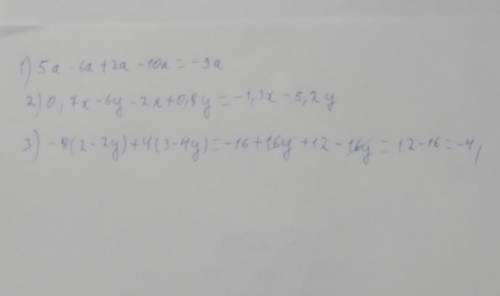 1) 5a - 6a + 2a - 10a = -9a
2) 0,7x - 6y - 2x + 0,8y = -1,3x - 5,2y
3) -8(2-2y)+4(3-4y) = -16+16y+12-16y = 12-16 = -4,